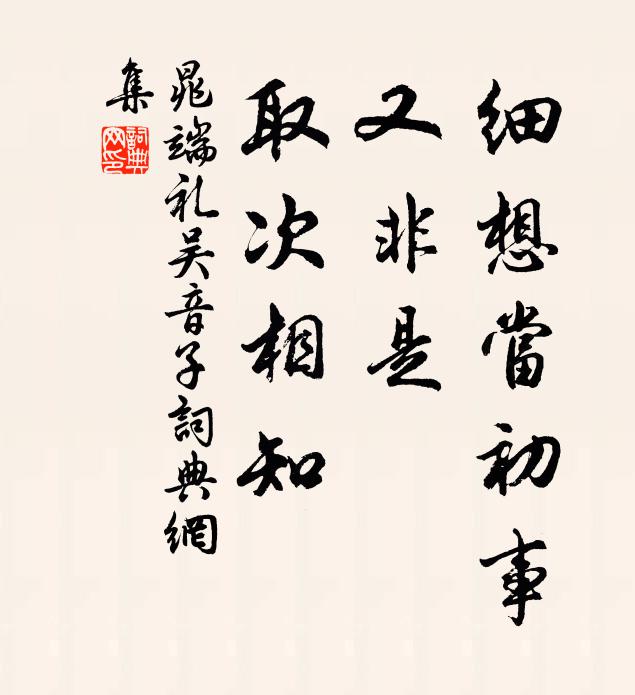 細想當初事
又非是
取次相知
晁端礼吴音子詞典網
集
詞典
网印